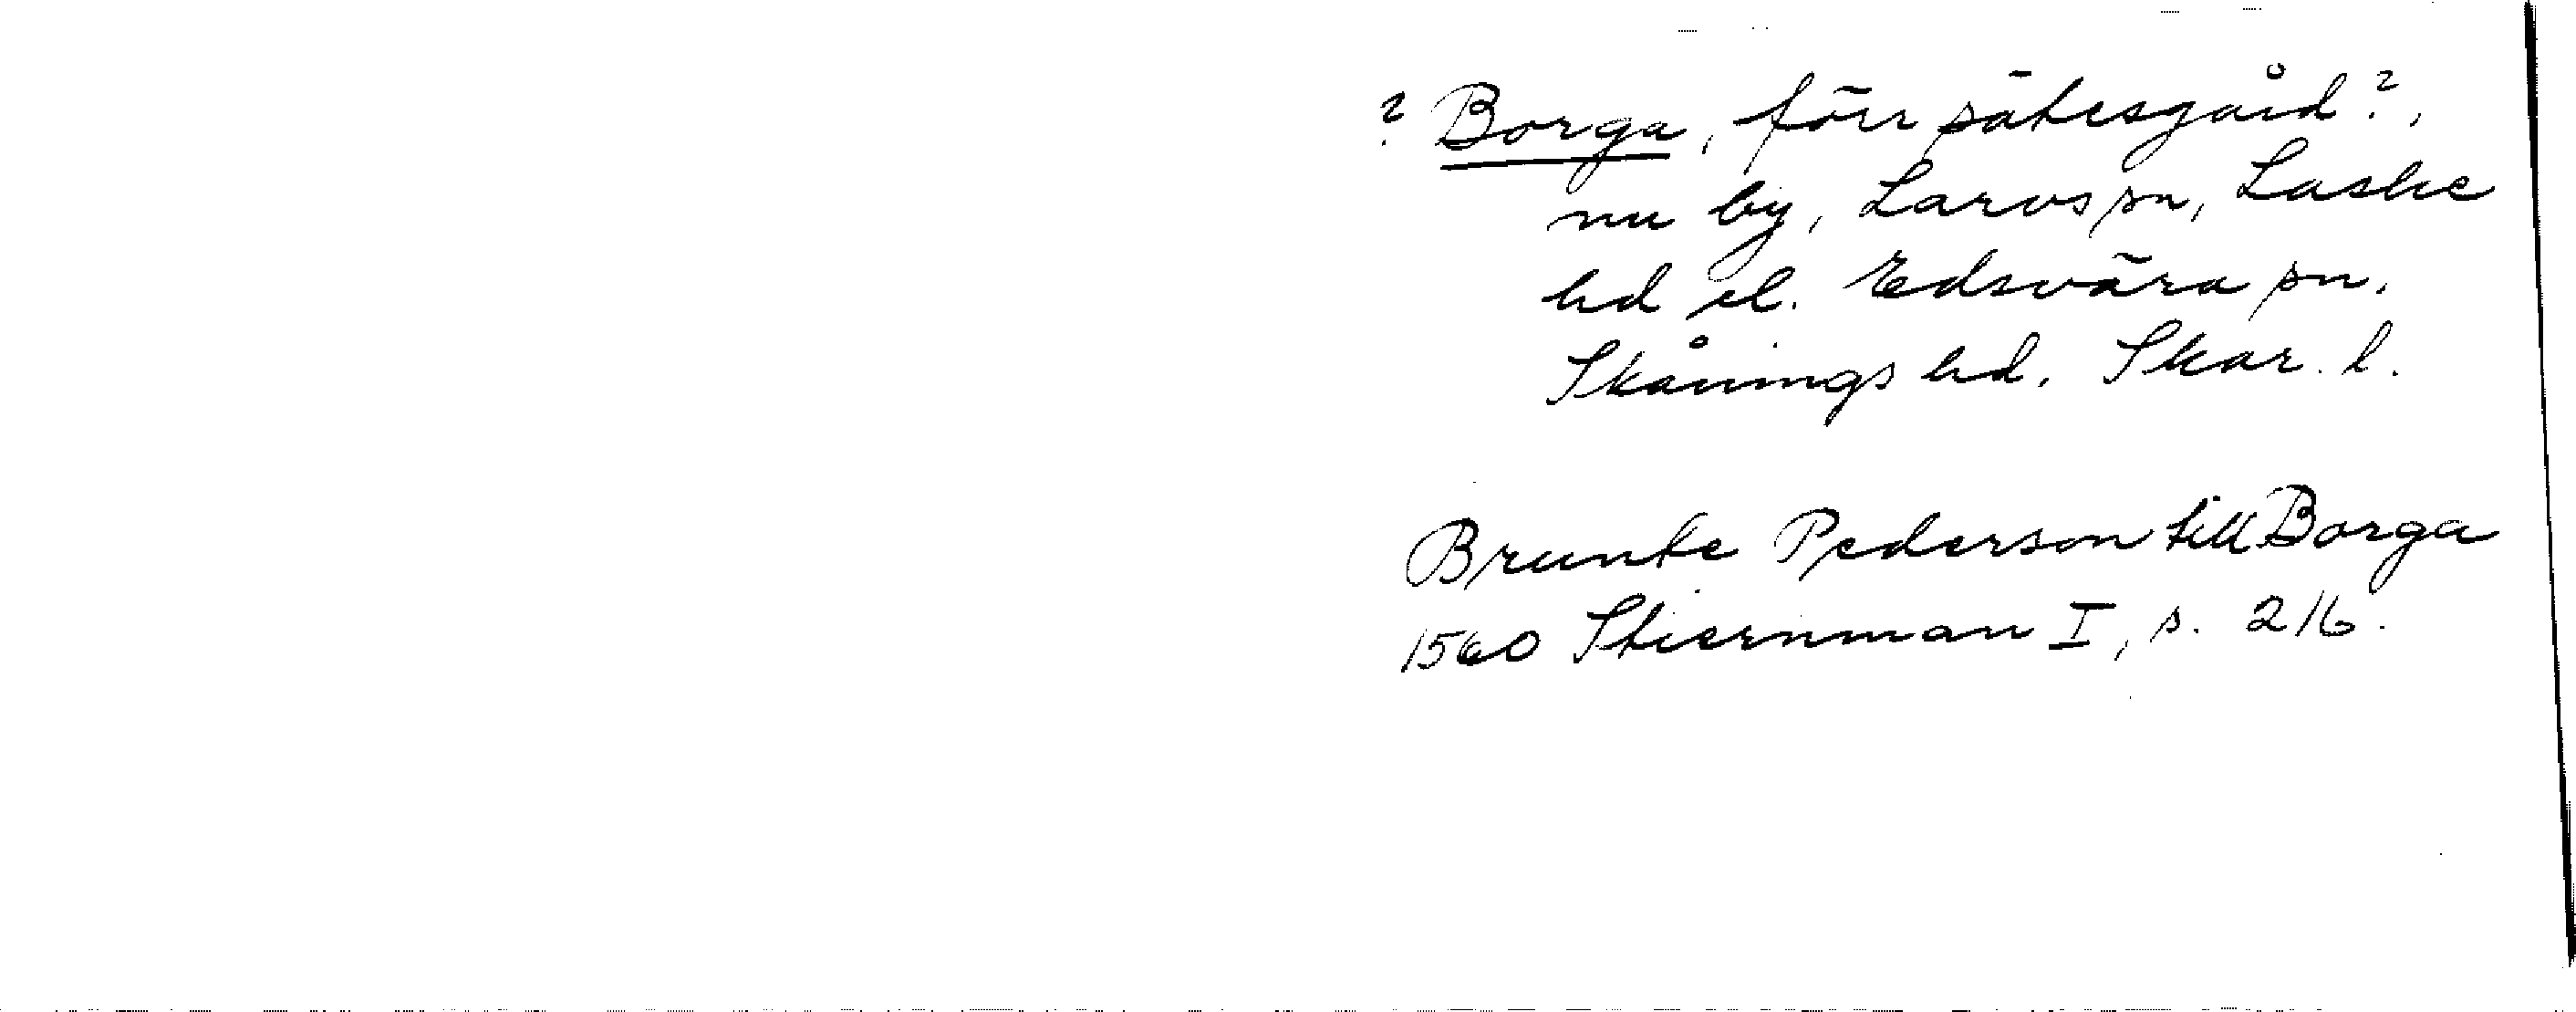 ? Borga, förr sätesgård?,
nu by, Larvs sn, Laske
hd el. Edsvära sn,
Skånings hd. Skar. l.
Brunte Pederson till Borga
1560 Stiernman I, s. 216.